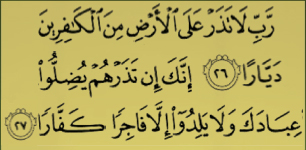 رَّبِّ لَا تَذَرْ عَلَى ٱلْأَرْضِ مِنَ ٱلْكَٰفِرِينَ
دَيَّارًا ٢٦ إِنَّكَ إِن تَذَرْهُمْ يُضِلُّوا۟
عِبَادَكَ وَلَا يَلِدُوٓا۟ إِلَّا فَاجِرًا كَفَّارًا ٢٧